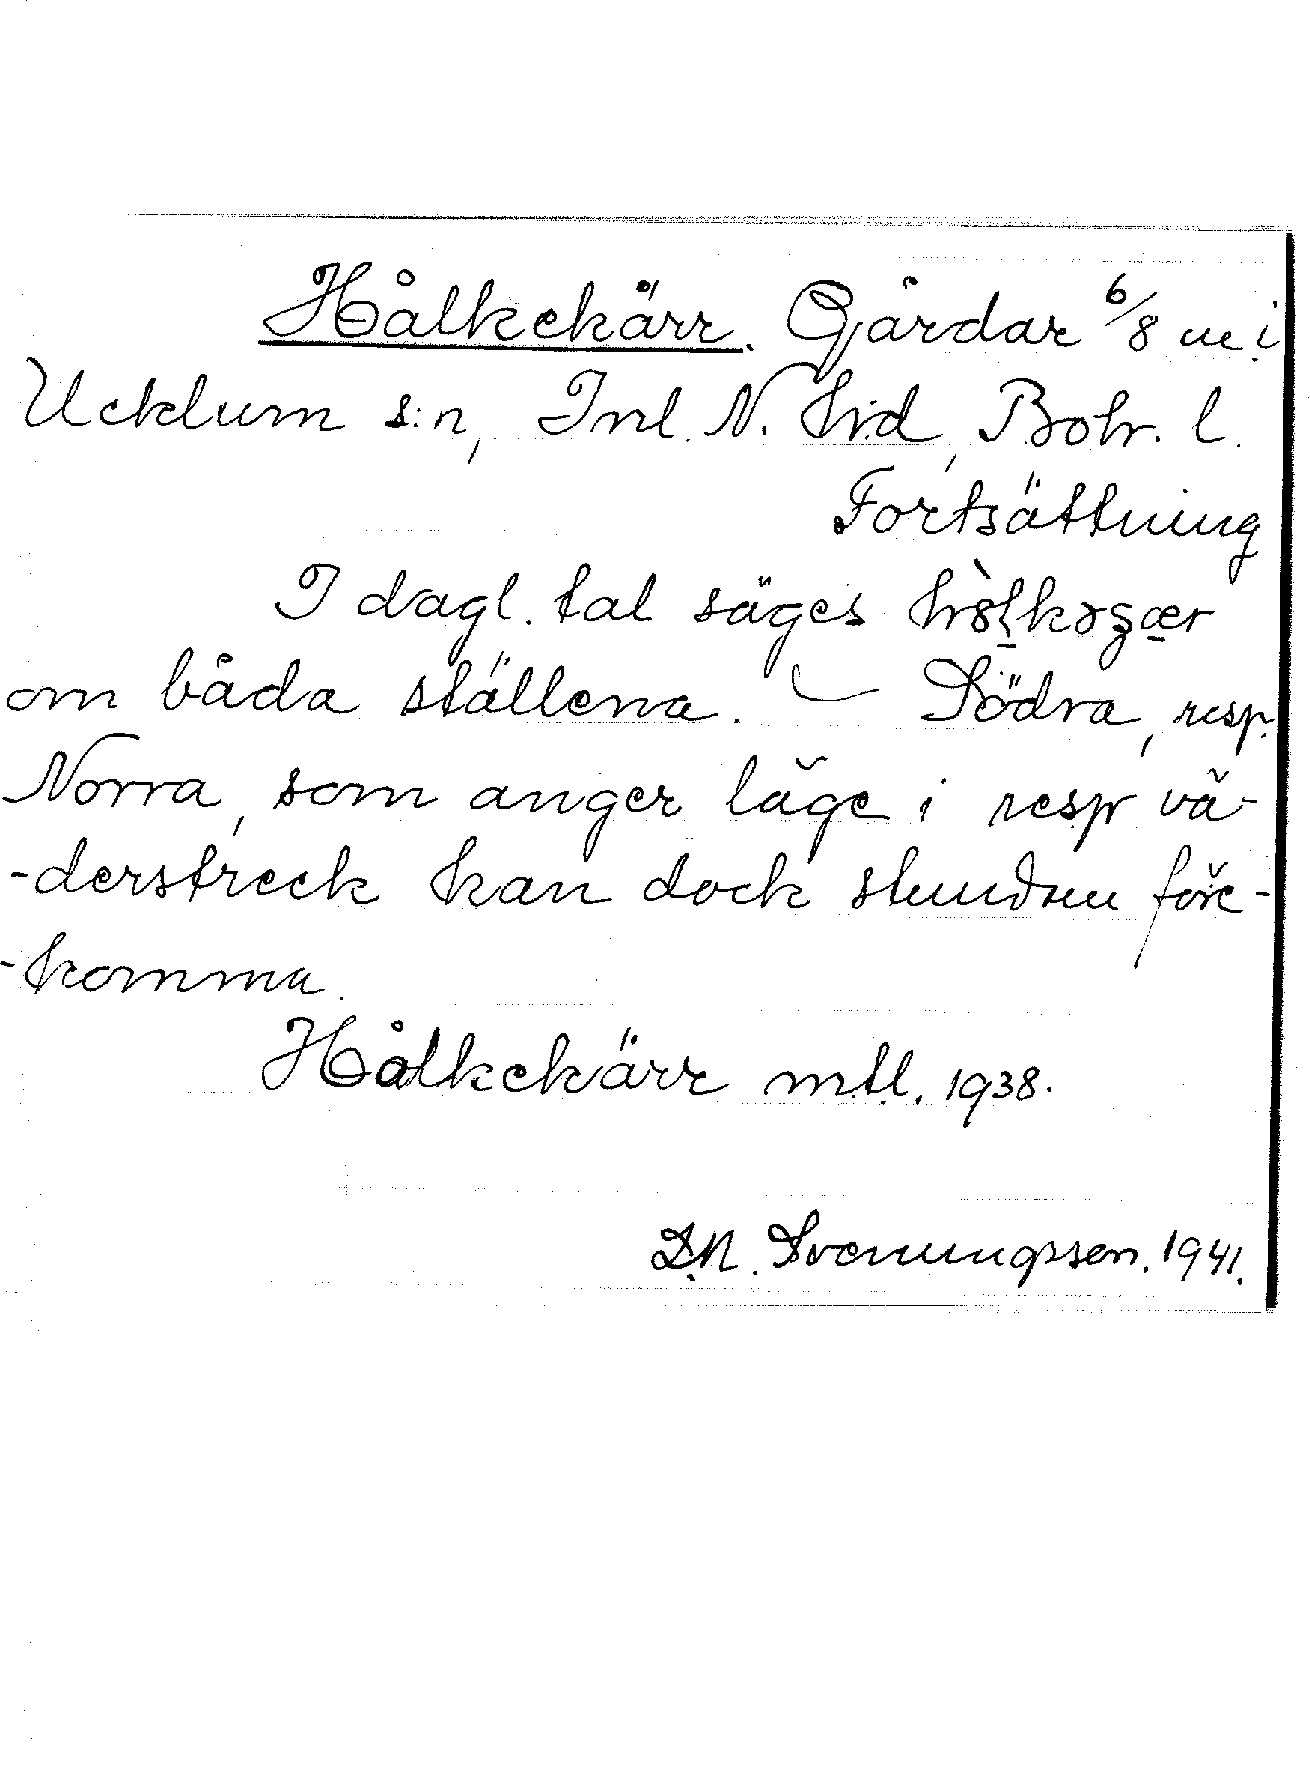 Hålkekärr. Gårdar 6/8 m i
Ucklum s:n, Inl. N. hd, Boh. l.
Fortsättning
I dagl. tal säges
om båda ställena. — Södra, resp.
Norra, som anger läge i resp vä-
-derstreck kan dock stundom före-
-komma.
Hålkekärr mtl. 1938.
D.N. Svenungsson. 1941.